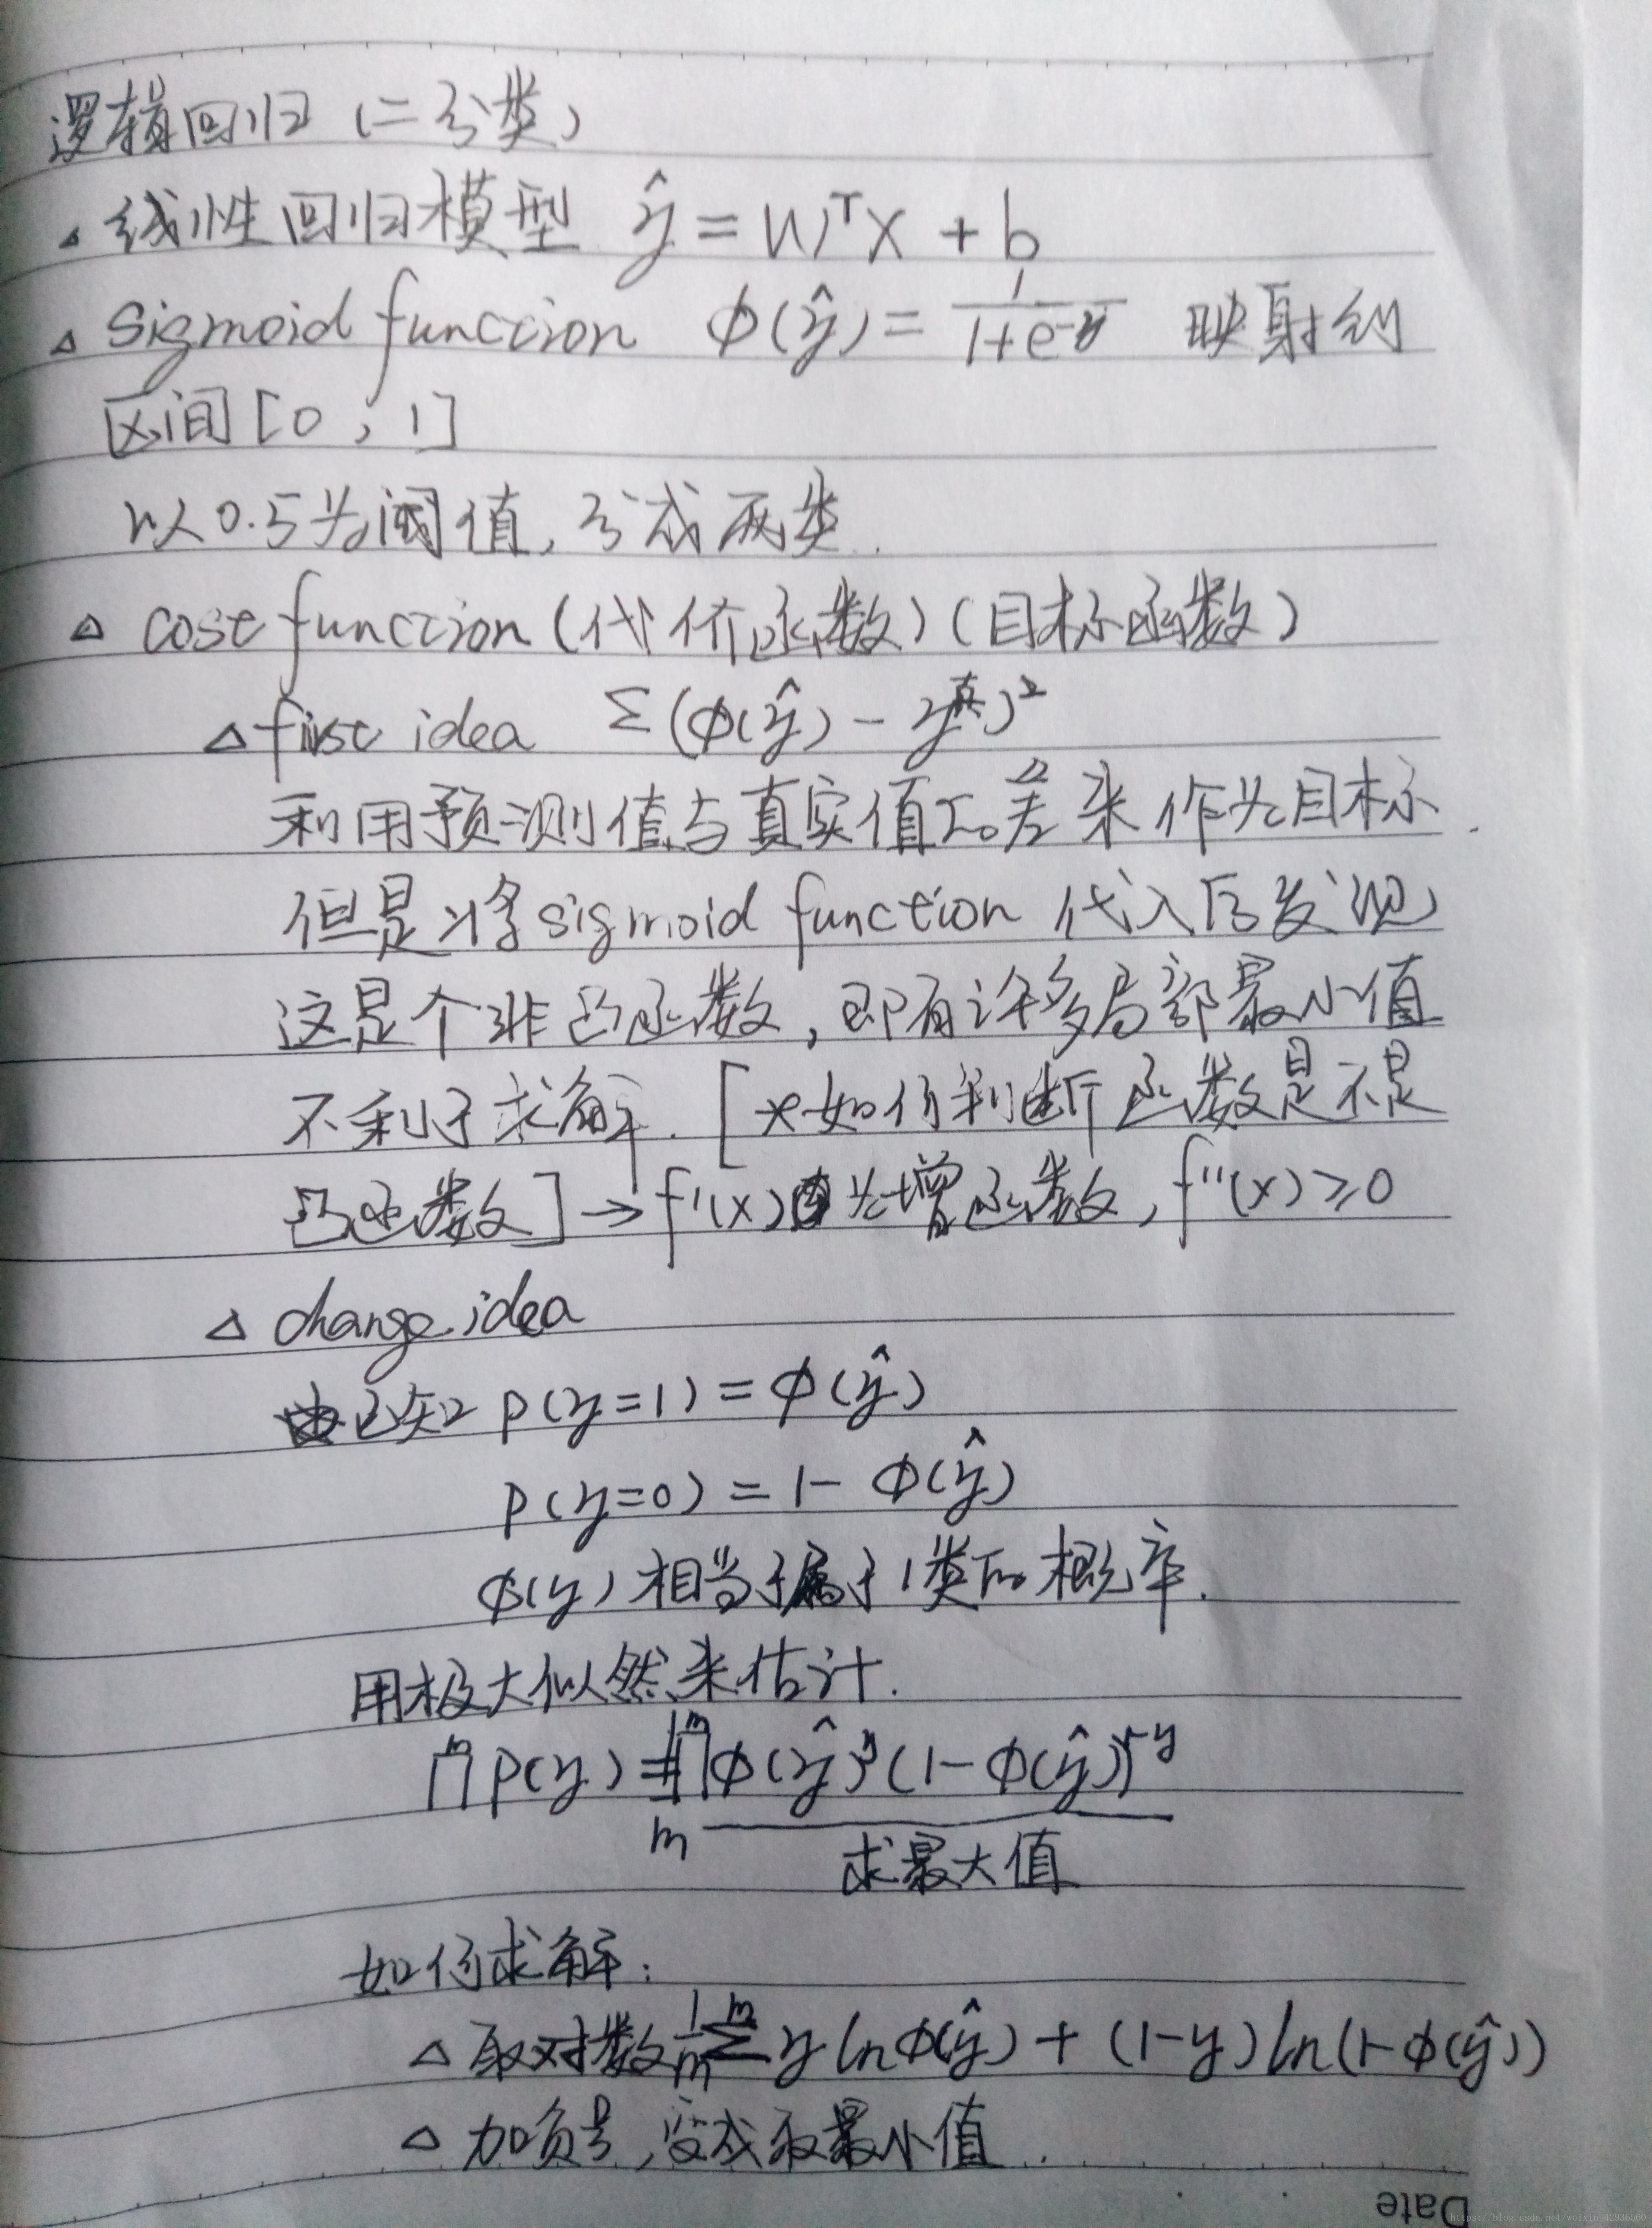 逻辑回归（二分类）
△ 线性回归模型 ŷ = WᵀX + b
△ sigmoid function ϕ(ŷ) = 1/(1+e^-y) 映射到
区间[0，1]
以0.5为阈值，分成两类.
△ cost function（代价函数）（目标函数）
△ first idea Σ(ϕ(ŷ) - y真)²
利用预测值与真实值的差来作为目标.
但是将sigmoid function 代入后发现
这是个非凸函数，即有许多局部最小值
不利于求解. [*如何判断函数是不是
凸函数] → f'(x)为增函数，f''(x)≥0
△ change idea
已知 P(y=1) = ϕ(ŷ)
P(y=0) = 1- ϕ(ŷ)
ϕ(y) 相当于属于1类的概率.
用极大似然来估计.
∏^m P(y) = ∏^m ϕ(ŷ)^y (1-ϕ(ŷ))^1-y
m
求最大值
如何求解：
△ 取对数 1/m Σ^m y lnϕ(ŷ) + (1-y) ln(1-ϕ(ŷ))
△ 加负号，变成取最小值.
Date